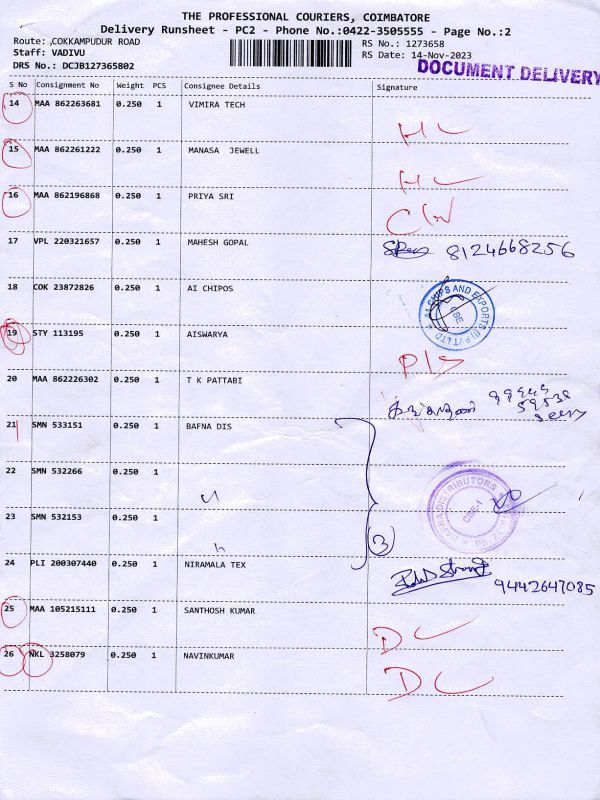 THE PROFESSIONAL COURIERS, COIMBATORE
Delivery Runsheet - PC2 - Phone No.:0422-3505555 - Page No.:2
Route: ,COKKAMPUDUR ROAD RS No.: 1273658
Staff: VADIVU RS Date: 14-Nov-2023
DRS No.: DCJB127365802 DOCUMENT DELIVERY
S No Consignment No Weight PCS Consignee Details Signature
14 MAA 862263681 0.250 1 VIMIRA TECH
15 MAA 862261222 0.250 1 MANASA JEWELL
16 MAA 862196868 0.250 1 PRIYA SRI
17 VPL 220321657 0.250 1 MAHESH GOPAL 8124668256
18 COK 23872826 0.250 1 AI CHIPOS
CHIPS AND EXPORTS (I) PVT LTD
CBE
19 STY 113195 0.250 1 AISWARYA
20 MAA 862226302 0.250 1 T K PATTABI
21 SMN 533151 0.250 1 BAFNA DIS
22 SMN 532266 0.250 1
DISTRIBUTORS
CBE-1
23 SMN 532153 0.250 1
3
24 PLI 200307440 0.250 1 NIRAMALA TEX 9442647085
25 MAA 105215111 0.250 1 SANTHOSH KUMAR D L
26 NKL 3258079 0.250 1 NAVINKUMAR D L